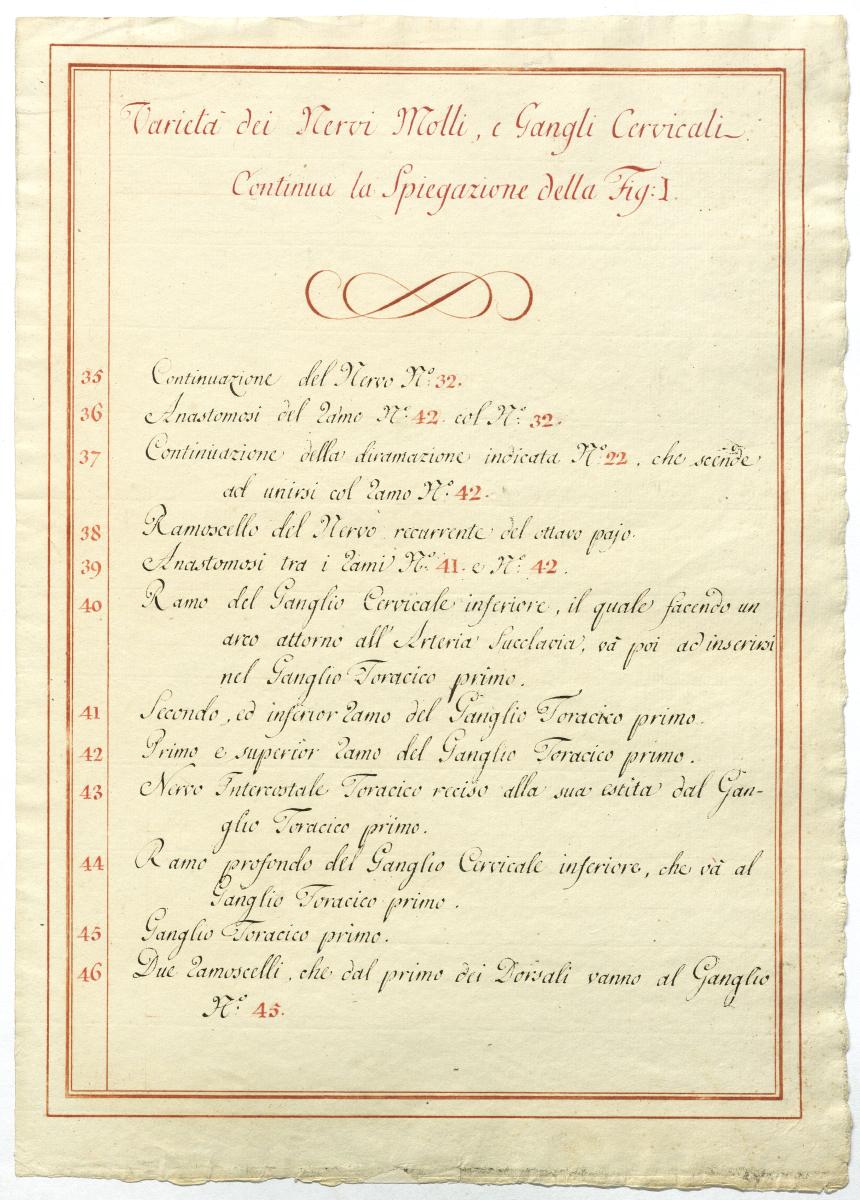 Varietà dei Nervi Molli, e Gangli Cervicali
Continua la Spiegazione della Fig: I.
35 Continuazione del Nervo N.º 32.
36 Anastomosi del Ramo N.º 42. col N.º 32.
37 Continuazione della diramazione indicata N.º 22. che scende
ad unirsi col Ramo N.º 42.
38 Ramoscello del Nervo recurrente del ottavo pajo.
39 Anastomosi tra i Rami N.º 41. e N.º 42.
40 Ramo del Ganglio Cervicale inferiore, il quale facendo un
arco attorno all'Arteria Succlavia, và poi ad inserirsi
nel Ganglio Toracico primo.
41 Secondo, ed inferior Ramo del Ganglio Toracico primo.
42 Primo e superior Ramo del Ganglio Toracico primo.
43 Nervo Intercostale Toracico reciso alla sua escita dal Gan-
glio Toracico primo.
44 Ramo profondo del Ganglio Cervicale inferiore, che và al
Ganglio Toracico primo.
45 Ganglio Toracico primo.
46 Due Ramoscelli, che dal primo dei Dorsali vanno al Ganglio
N.º 45.